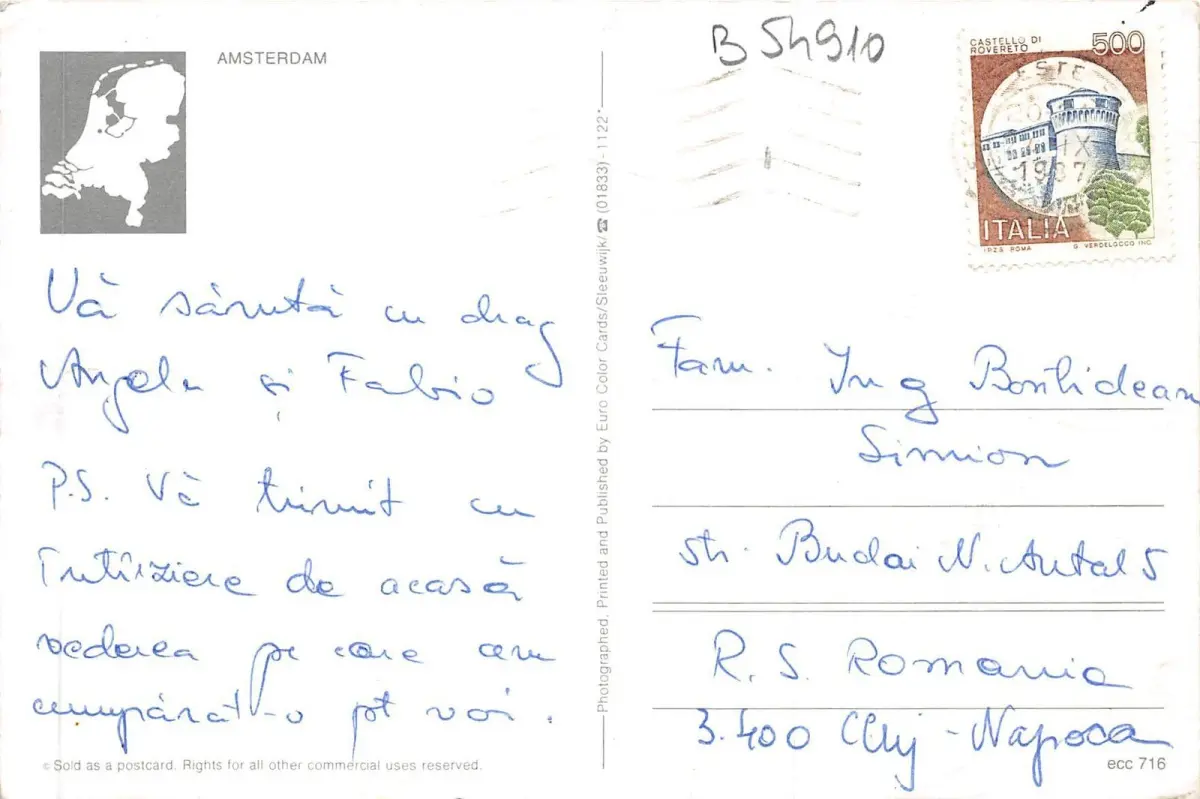 AMSTERDAM
B 54910
CASTELLO DI
ROVERETO
500
ESTE
IX
1987
ITALIA
I.P.Z.S. ROMA
G. VERDELOCCO INC.
Vă sărută cu drag
Angela și Fabio
P.S. Vă trimit cu
întîrziere de acasă
vederea pe care am
cumpărat-o pt voi.
Photographed, Printed and Published by Euro Color Cards/Sleeuwijk/☎ (01833) - 1122*
Fam. Ing
Simion
str. Budai N. Antal 5
R. S. Romania
3.400 Cluj-Napoca
© Sold as a postcard. Rights for all other commercial uses reserved.
ecc 716